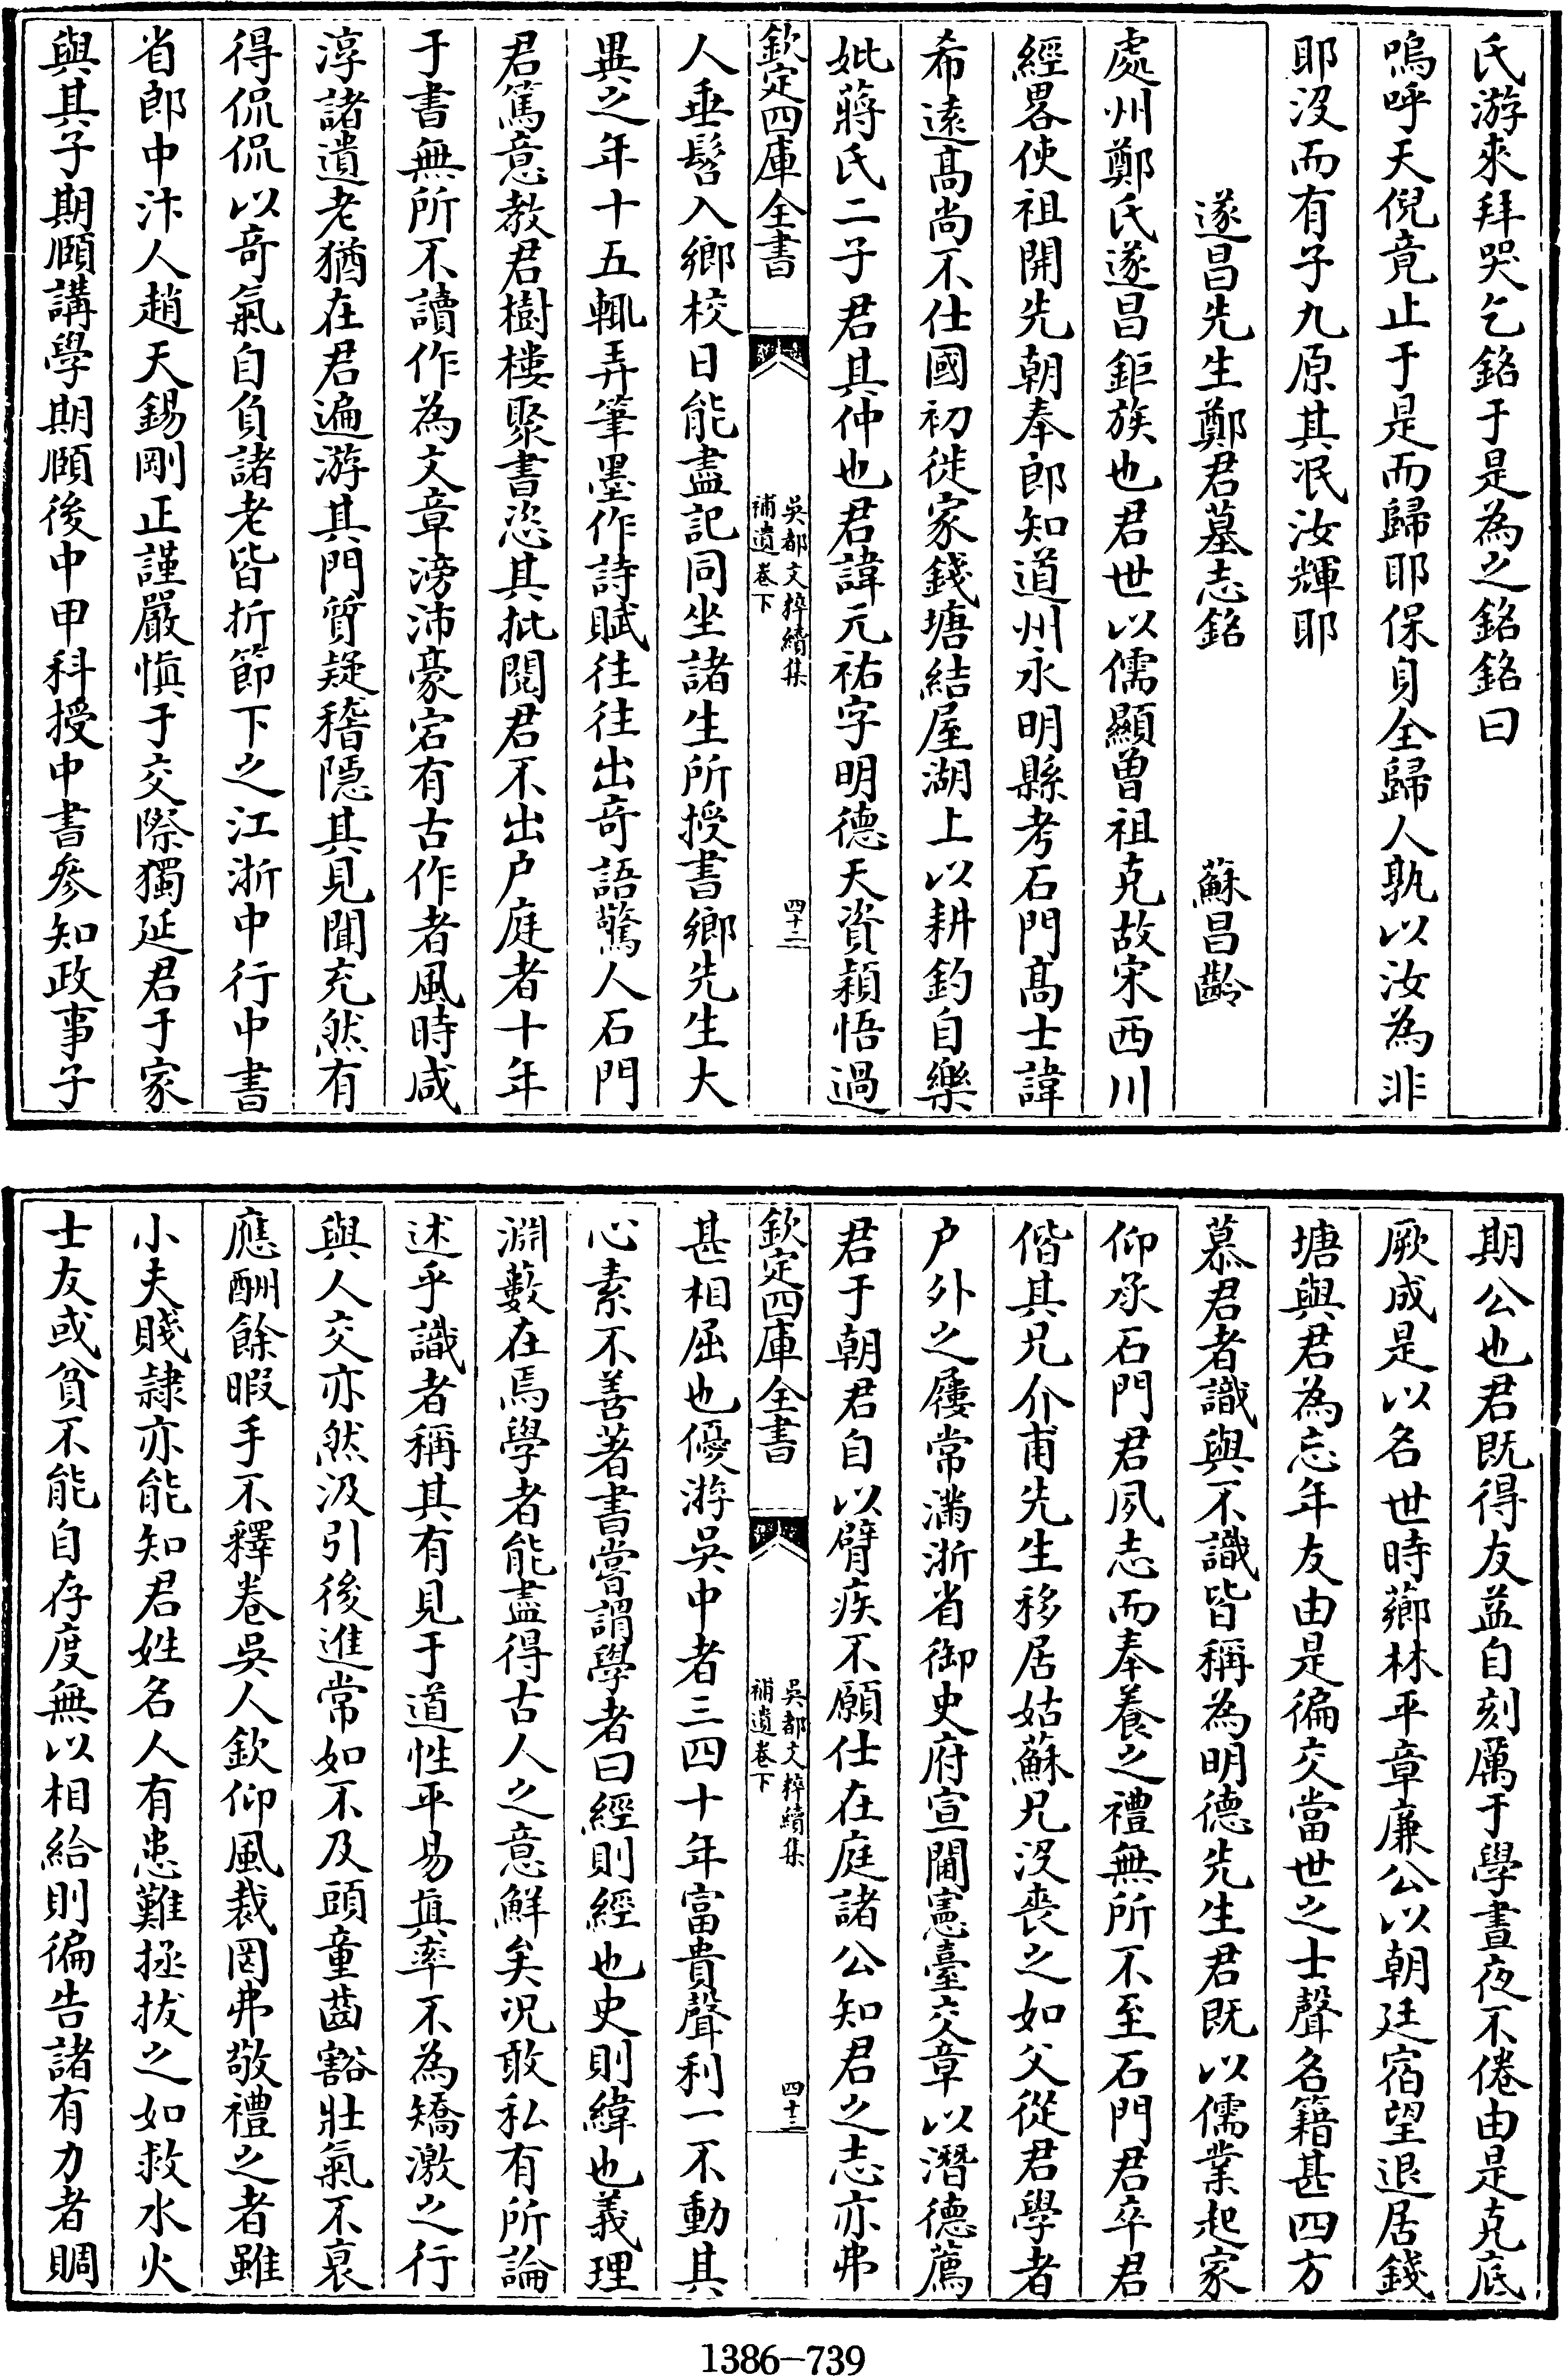 氏游來拜哭乞銘于是為之銘銘曰
嗚呼天倪竟止于是而歸耶保身全歸人孰以汝為非
耶沒而有子九原其泯汝輝耶
遂昌先生鄭君墓志銘 蘇昌齡
處州鄭氏遂昌鉅族也君世以儒顯曾祖克故宋西川
經畧使祖開先朝奉郎知道州永明縣考石門高士諱
希遠高尚不仕國初徙家錢塘結屋湖上以耕釣自樂
妣蔣氏二子君其仲也君諱元祐字明德天資穎悟過
欽定四庫全書
吳都文粹續集
補遺卷下
四十二
人垂髫入鄉校日能盡記同坐諸生所授書鄉先生大
異之年十五輒弄筆墨作詩賦往往出奇語驚人石門
君篤意教君樹樓聚書恣其批閱君不出户庭者十年
于書無所不讀作為文章滂沛豪宕有古作者風時咸
淳諸遺老猶在君遍游其門質疑稽隱其見聞充然有
得侃侃以奇氣自負諸老皆折節下之江浙中行中書
省郎中汴人趙天錫剛正謹嚴慎于交際獨延君于家
與其子期頤講學期頤後中甲科授中書參知政事子
期公也君既得友益自刻厲于學晝夜不倦由是克底
厥成是以名世時薌林平章廉公以朝廷宿望退居錢
塘與君為忘年友由是徧交當世之士聲名籍甚四方
慕君者識與不識皆稱為明德先生君既以儒業起家
仰承石門君夙志而奉養之禮無所不至石門君卒君
偕其兄介甫先生移居姑蘇兄沒喪之如父從君學者
户外之屨常滿浙省御史府宣閫憲臺交章以潛德薦
君于朝君自以臂疾不願仕在庭諸公知君之志亦弗
欽定四庫全書
吳都文粹續集
補遺卷下
四十三
甚相屈也優游吳中者三四十年富貴聲利一不動其
心素不善著書嘗謂學者曰經則經也史則緯也義理
淵藪在焉學者能盡得古人之意鮮矣况敢私有所論
述乎識者稱其有見于道性平易真率不為矯激之行
與人交亦然汲引後進常如不及頭童齒豁壯氣不衰
應酬餘暇手不釋卷吳人欽仰風裁罔弗敬禮之者雖
小夫賤隸亦能知君姓名人有患難拯拔之如救水火
士友或貧不能自存度無以相給則徧告諸有力者賙
1386-739